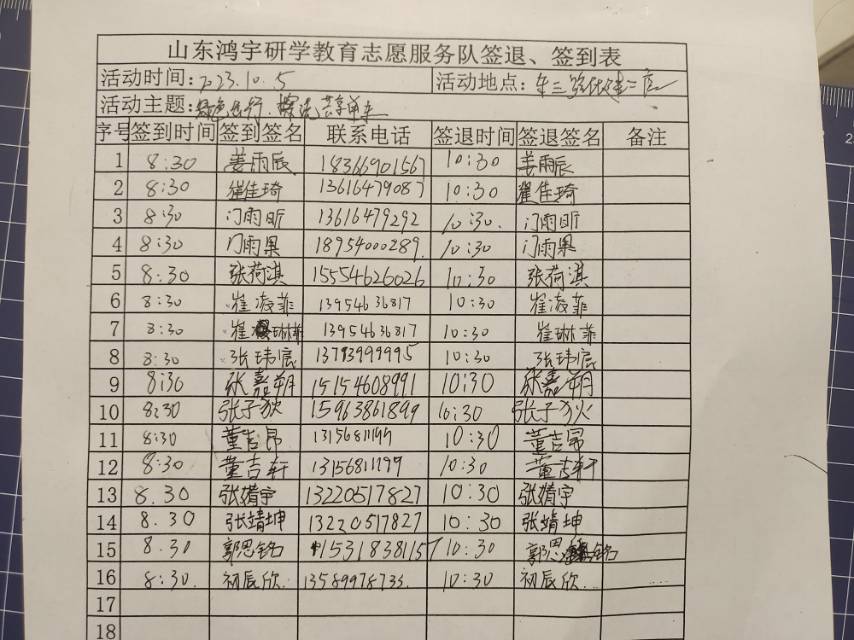 山东鸿宇研学教育志愿服务队签退、签到表
活动时间: 2023.10.5 活动地点:
活动主题: 绿色出行、共享单车
序号 签到时间 签到签名 联系电话 签退时间 签退签名 备注
1 8:30 姜雨辰 18366901567 10:30 姜雨辰
2 8:30 翟佳琦 13616479087 10:30 翟佳琦
3 8:30 门雨昕 13616479292 10:30. 门雨昕
4 8:30 门雨果 18954000289. 10:30 门雨果
5 8:30 张荷淇 15554626026 10:30 张荷淇
6 8:30 崔凌菲 13954636817 10:30 崔凌菲
7 8:30 崔琳菲 13954636817 10:30 崔琳菲
8 8:30 张玮宸 13793999995 10:30 张玮宸
9 8:30 张嘉朔 15154608991 10:30 张嘉朔
10 8:30 张子狄 15963861899 10:30 张子狄
11 8:30 董吉昂 13156811199 10:30 董吉昂
12 8:30 董吉轩 13156811199 10:30 董吉轩
13 8.30 张婧宇 13220517827 10:30 张婧宇
14 8.30 张靖坤 13220517827 10:30 张靖坤
15 8.30 郭思铭 15318381157 10:30 郭思铭
16 8:30. 初辰欣. 13589978733. 10:30 初辰欣.
17
18